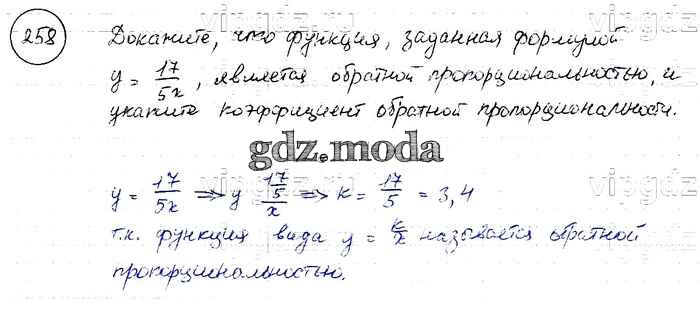 258
Докажите, что функция, заданная формулой
y = 17/5x, является обратной пропорциональностью, и
укажите коэффициент обратной пропорциональности.
gdz.moda
y = 17/5x ⇒ y 17/5/x ⇒ k = 17/5 = 3,4
т.к. функция вида y = k/x называется обратной
пропорциональностью.
vipgdz.ru
vipgdz